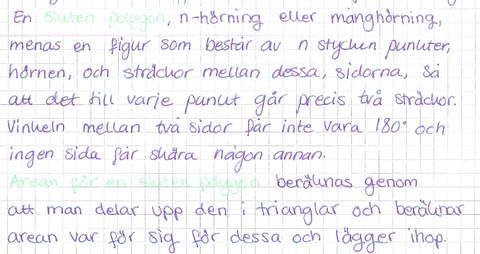 En sluten polygon, n-hörning eller månghörning,
menas en figur som består av n stycken punkter,
hörnen, och sträckor mellan dessa, sidorna, så
att det till varje punkt går precis två sträckor.
Vinkeln mellan två sidor får inte vara 180° och
ingen sida får skära någon annan.
Arean för en sluten polygon beräknas genom
att man delar upp den i trianglar och beräknar
arean var för sig för dessa och lägger ihop.